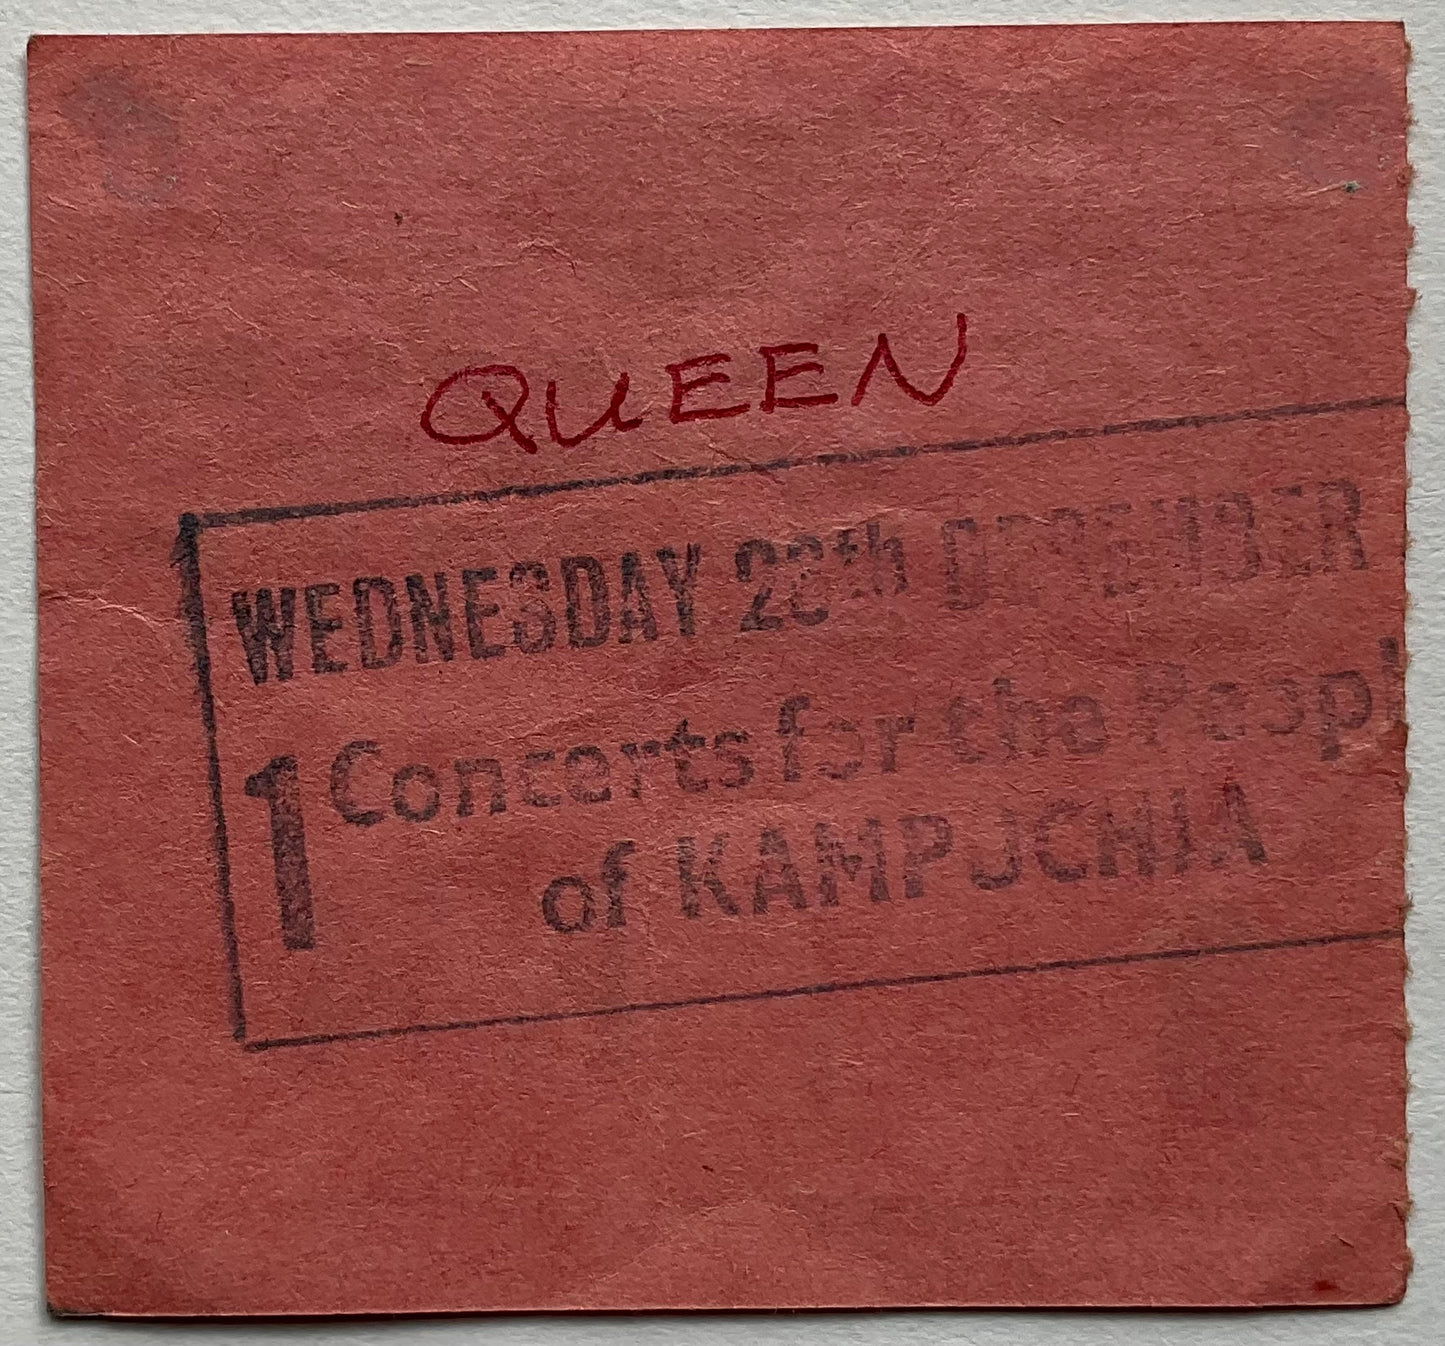 QUEEN
WEDNESDAY 26th DECEMBER
1 Concerts for the Peopl
of KAMPUCHIA